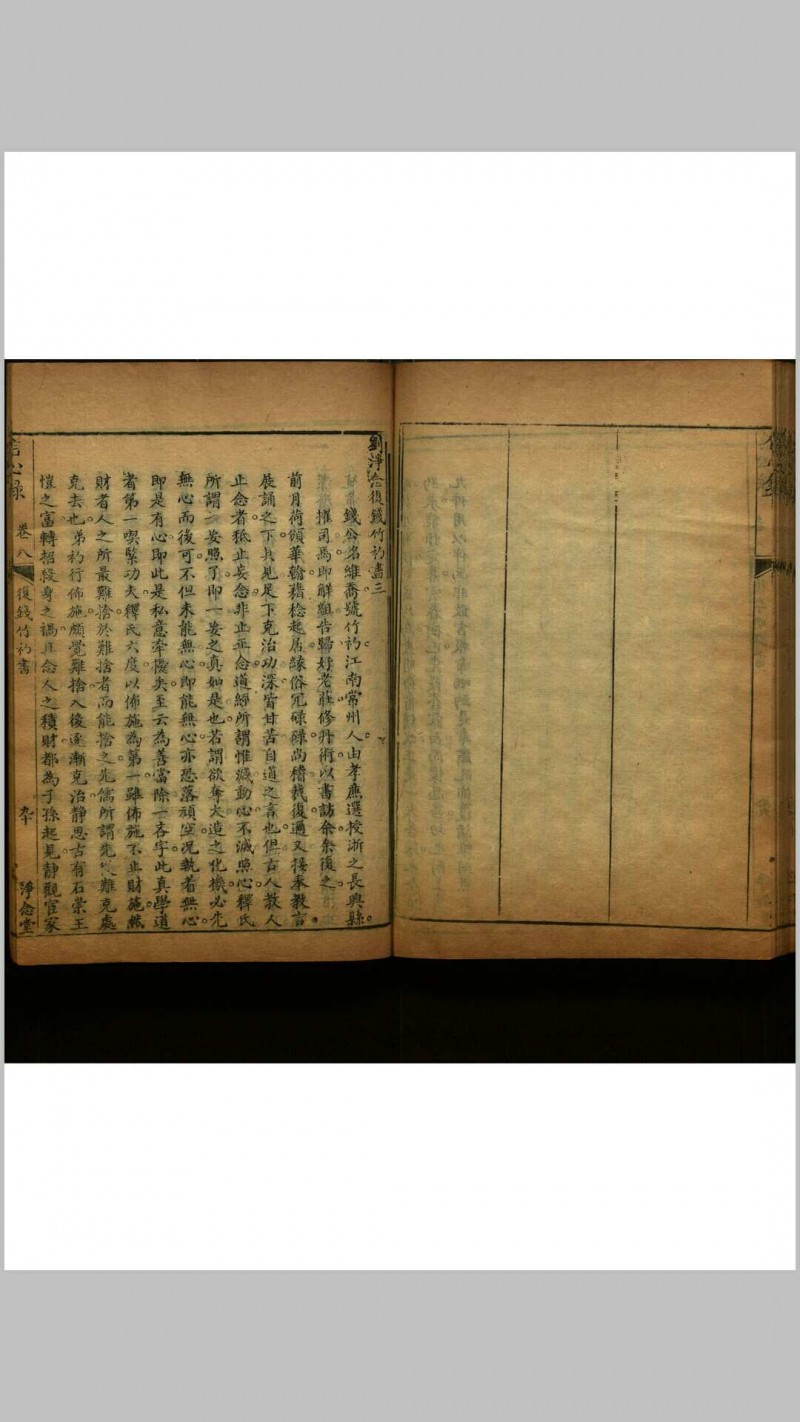 劉淨念復錢竹礽書三
錢公名維喬號竹礽江南常州人由孝廉選授浙之長興縣
擢司馬即解顯告歸好老莊修丹術以書訪余余復之
前月荷頒華翰藉稔起居緣俗冗碌碌尚稽裁復適又接奉教言
展誦之下具見足下克治功深皆甘苦自道之言也但古人教人
止念者秪止妄念非止正念道經所謂惟滅動心不滅照心釋氏
所謂一妄照了即一妄之真如是也若謂欲奪大造之化機必先
無心而後可不但未能無心即能無心亦恐落頑空况執着無心
即是有心即此是私意牽擾矣至云為善當除一吝字此真學道
者第一喫緊功夫釋氏六度以佈施為第一雖佈施不止財施然
財者人之所最難捨於難捨者而能捨之先儒所謂先從難克處
克去也弟礽行佈施頗覺難捨久後逐漸克治靜思古有石崇王
愷之富轉招殺身之禍且念人之積財都為子孫起見靜觀宦家
卷八
復錢竹礽書
淨念堂